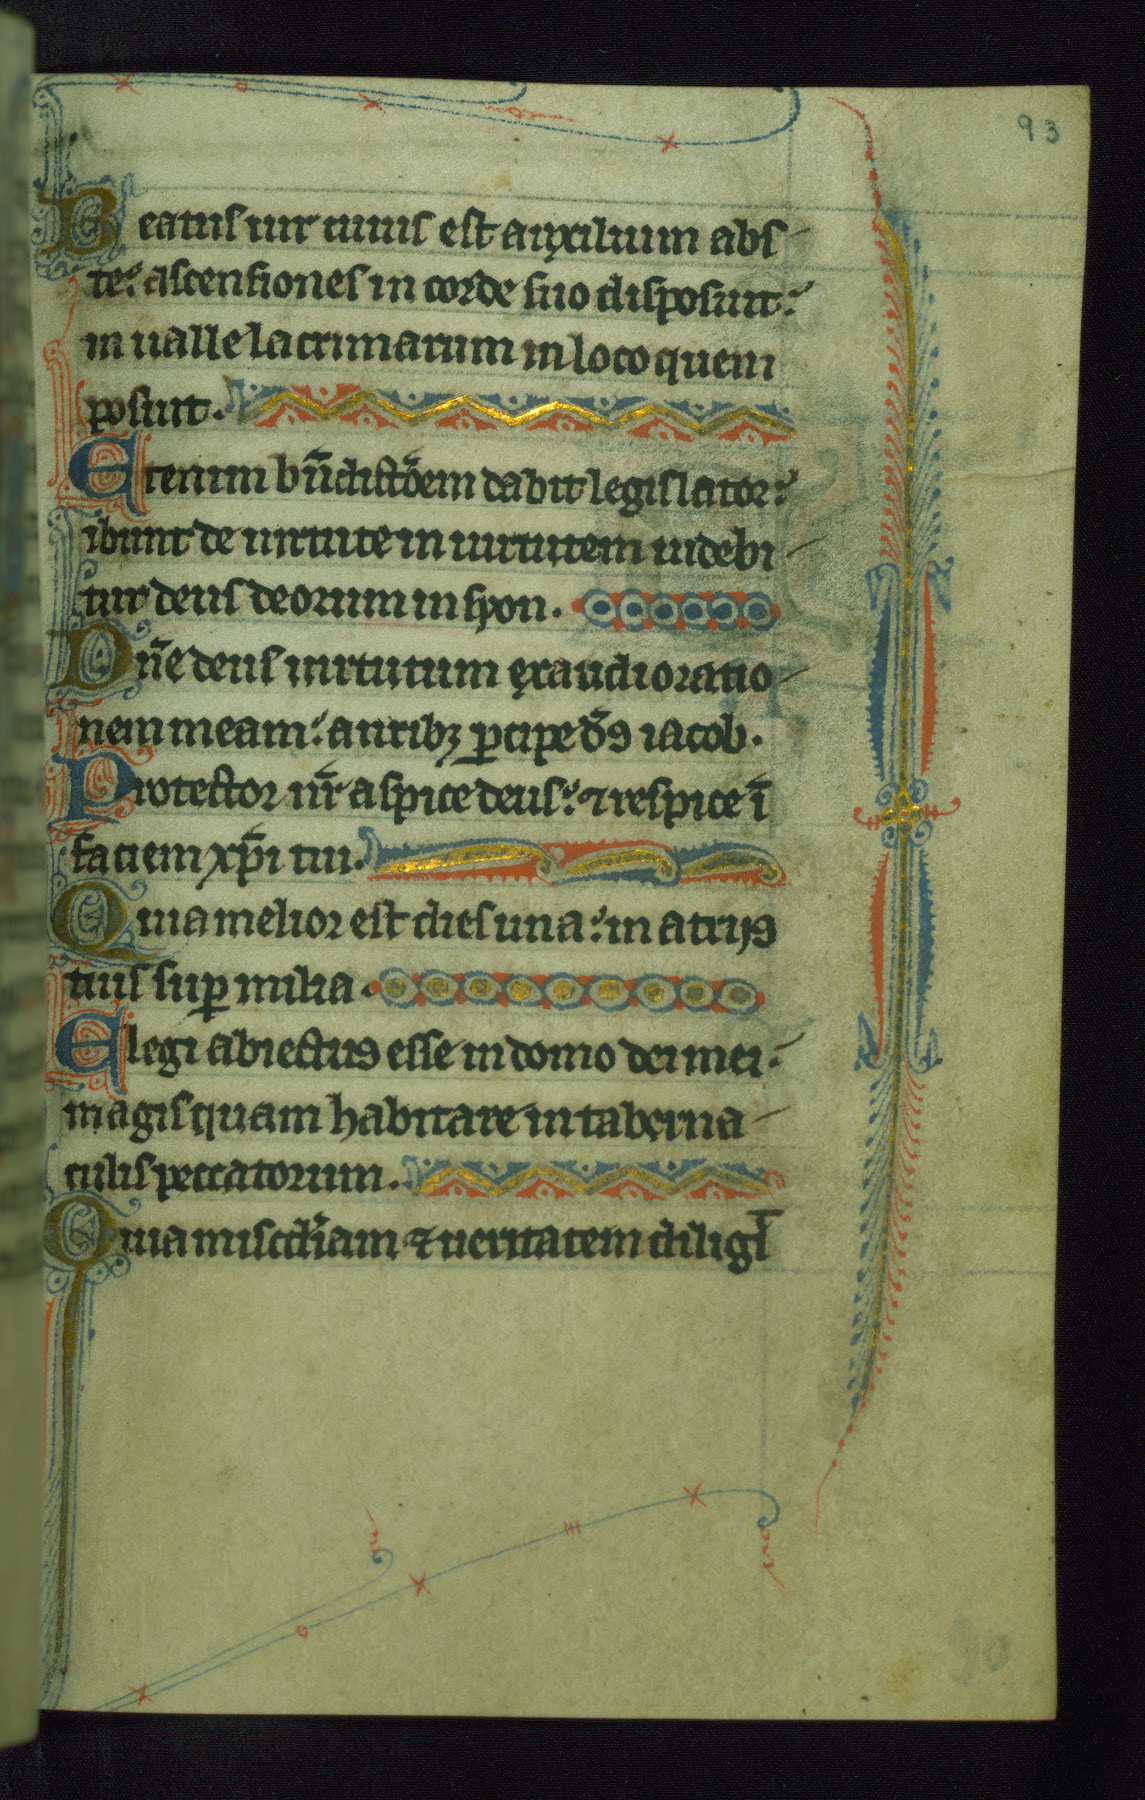 93
Beatus uir cuius est auxilium abs
te: ascensiones in corde suo disposuit:
in ualle lacrimarum in loco quem
posuit.
Etenim bn̄dictōem dabit legislator:
ibunt de uirtute in uirtutem uidebi
tur deus deorum in syon.
Dn̄e deus uirtutum exaudi oratio
nem meam: auribꝫ ꝑcipe dꝰs iacob.
Protector nr̄ aspice deus: ⁊ respice ī
faciem xp̄i tui.
Quia melior est dies una: in atrijs
tuis suꝑ milia.
Elegi abiectus esse in domo dei mei:
magis quam habitare in taberna
culis peccatorum.
Quia miscd̄iam ⁊ ueritatem diligī